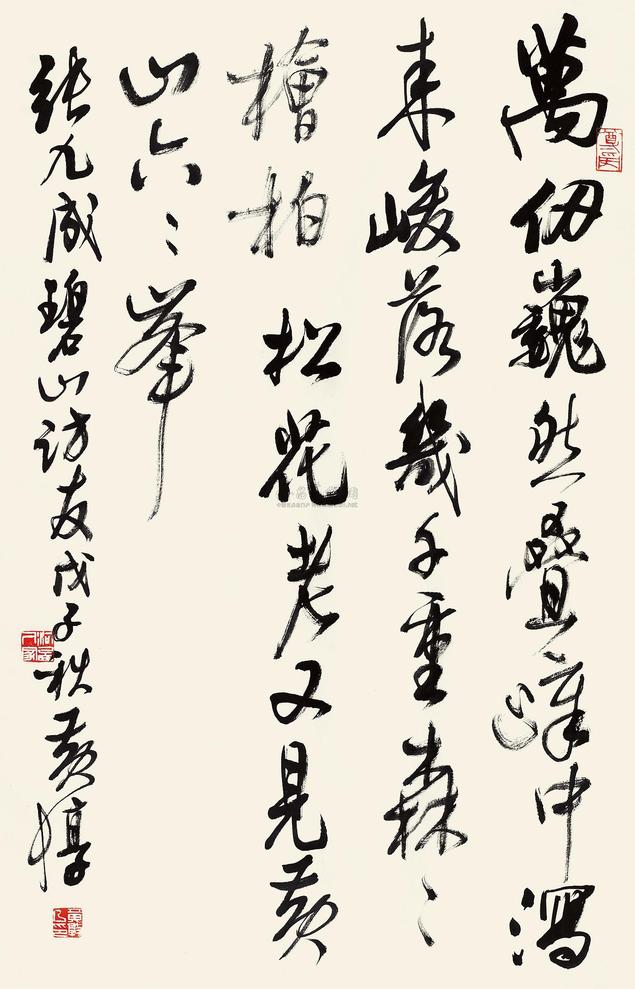 萬仞巍然疊嶂中瀉
来峻落幾千重森〻
檜柏松花老又見黃
山六〻峯
張九成碧山訪友戊子秋黃惇